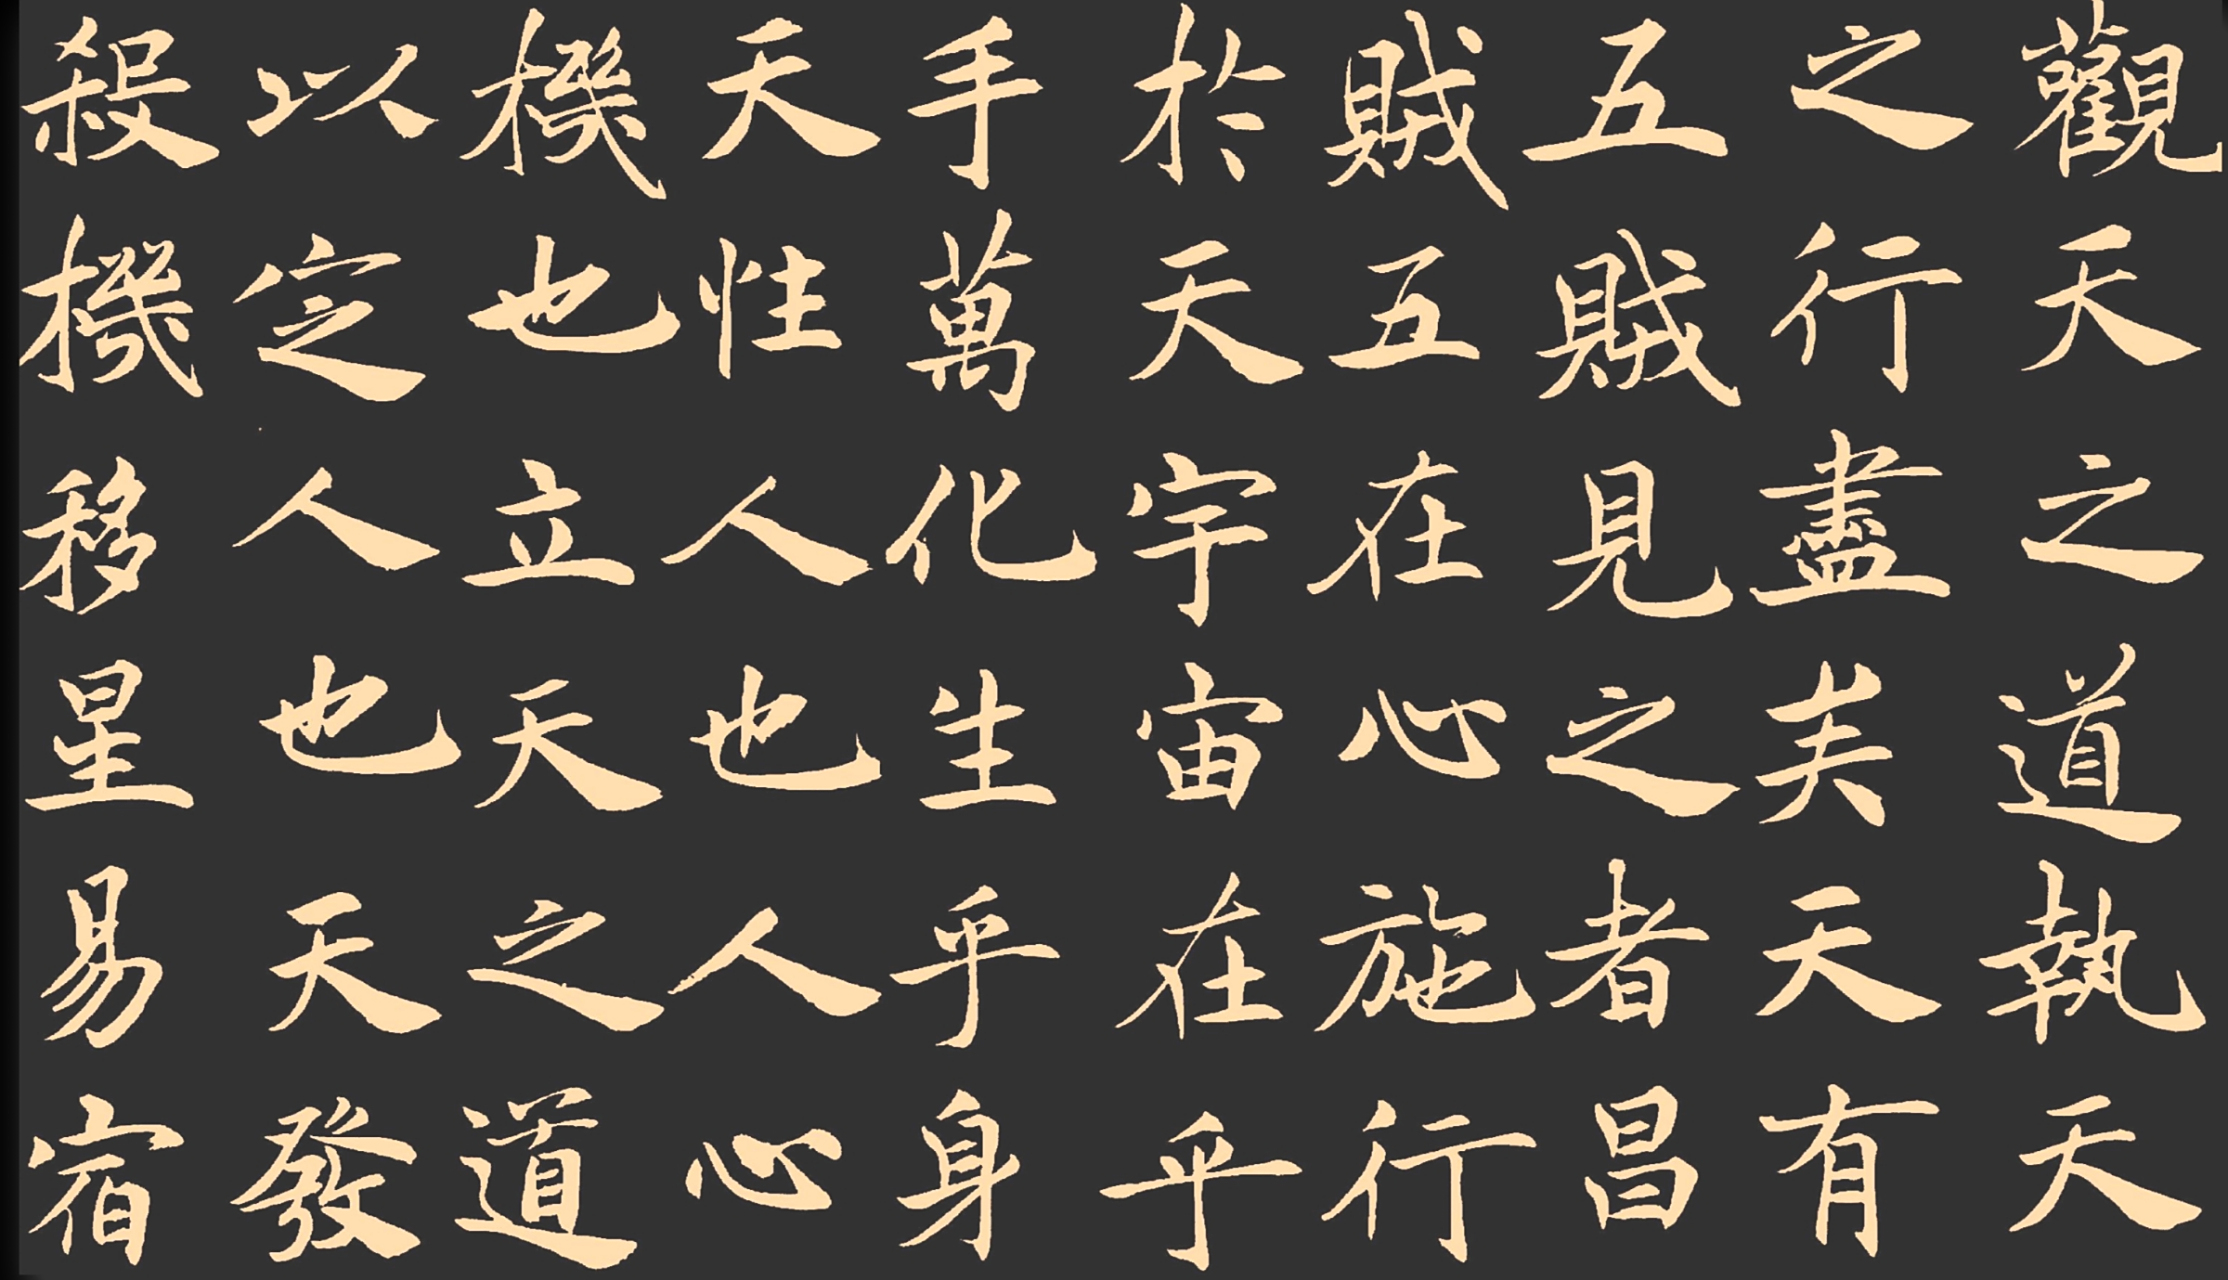 觀天之道執天
之行盡矣天有
五賊見之者昌
賊五在心施行
於天宇宙在乎
手萬化生乎身
天性人也人心
機也立天之道
以定人也天發
殺機移星易宿